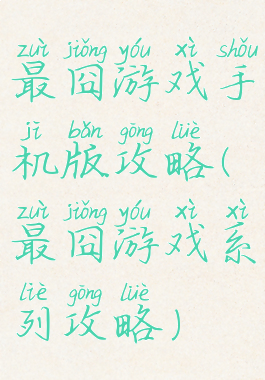 zuì jiǒng yóu xì shǒu
最囧游戏手
jī bǎn gōng lüè
机版攻略(
zuì jiǒng yóu xì xì
最囧游戏系
liè gōng lüè
列攻略)